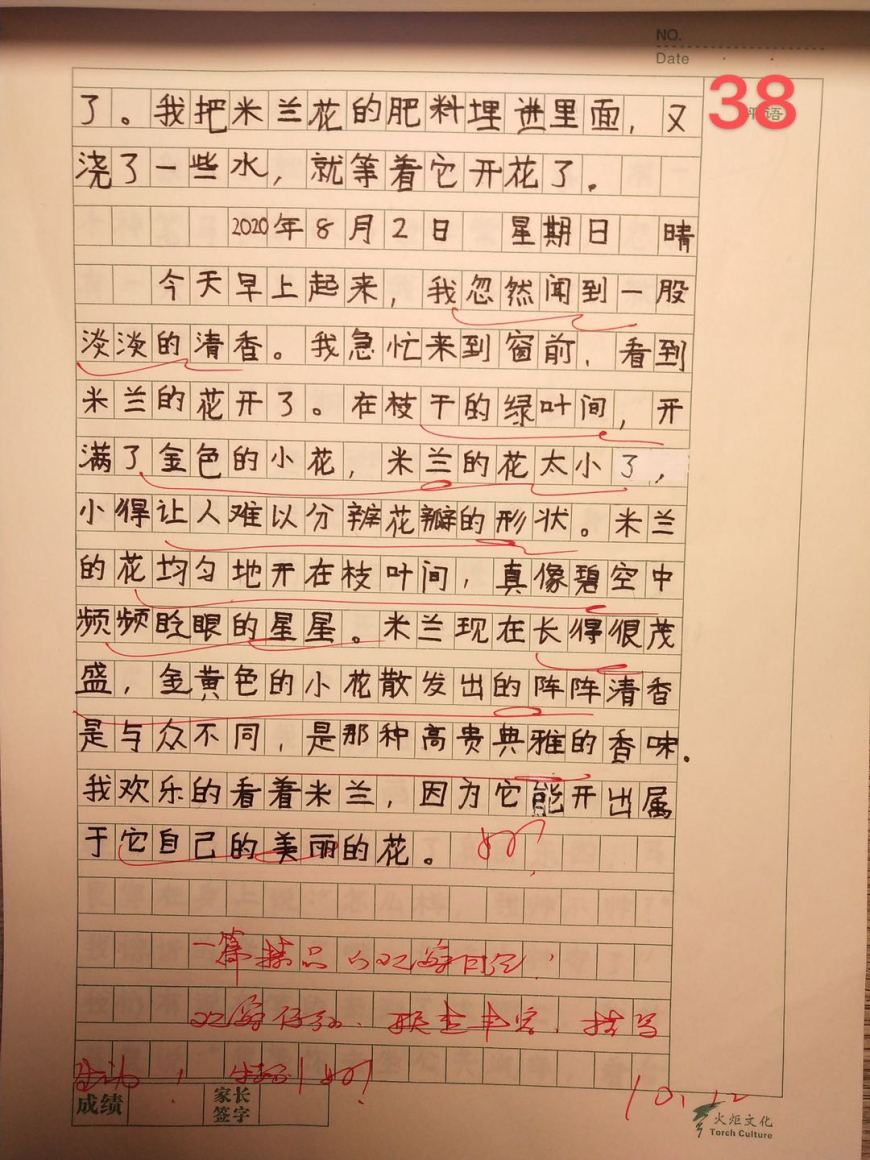 NO.
Date
38
评语
了。我把米兰花的肥料埋进里面,又
浇了一些水,就等着它开花了。
2020年8月2日 星期日 晴
今天早上起来,我忽然闻到一股
淡淡的清香。我急忙来到窗前,看到
米兰的花开了。在枝干的绿叶间,开
满了金色的小花,米兰的花太小了,
小得让人难以分辨花瓣的形状。米兰
的花均匀地开在枝叶间,真像碧空中
频频眨眼的星星。米兰现在长得很茂
盛,金黄色的小花散发出的阵阵清香
是与众不同,是那种高贵典雅的香味。
我欢乐的看着米兰,因为它能开出属
于它自己的美丽的花。 好!
一篇精品的观察日记!
观察仔细、描写
生动! 特别好!
10.12
成绩
家长
签字
火炬文化
Torch Culture